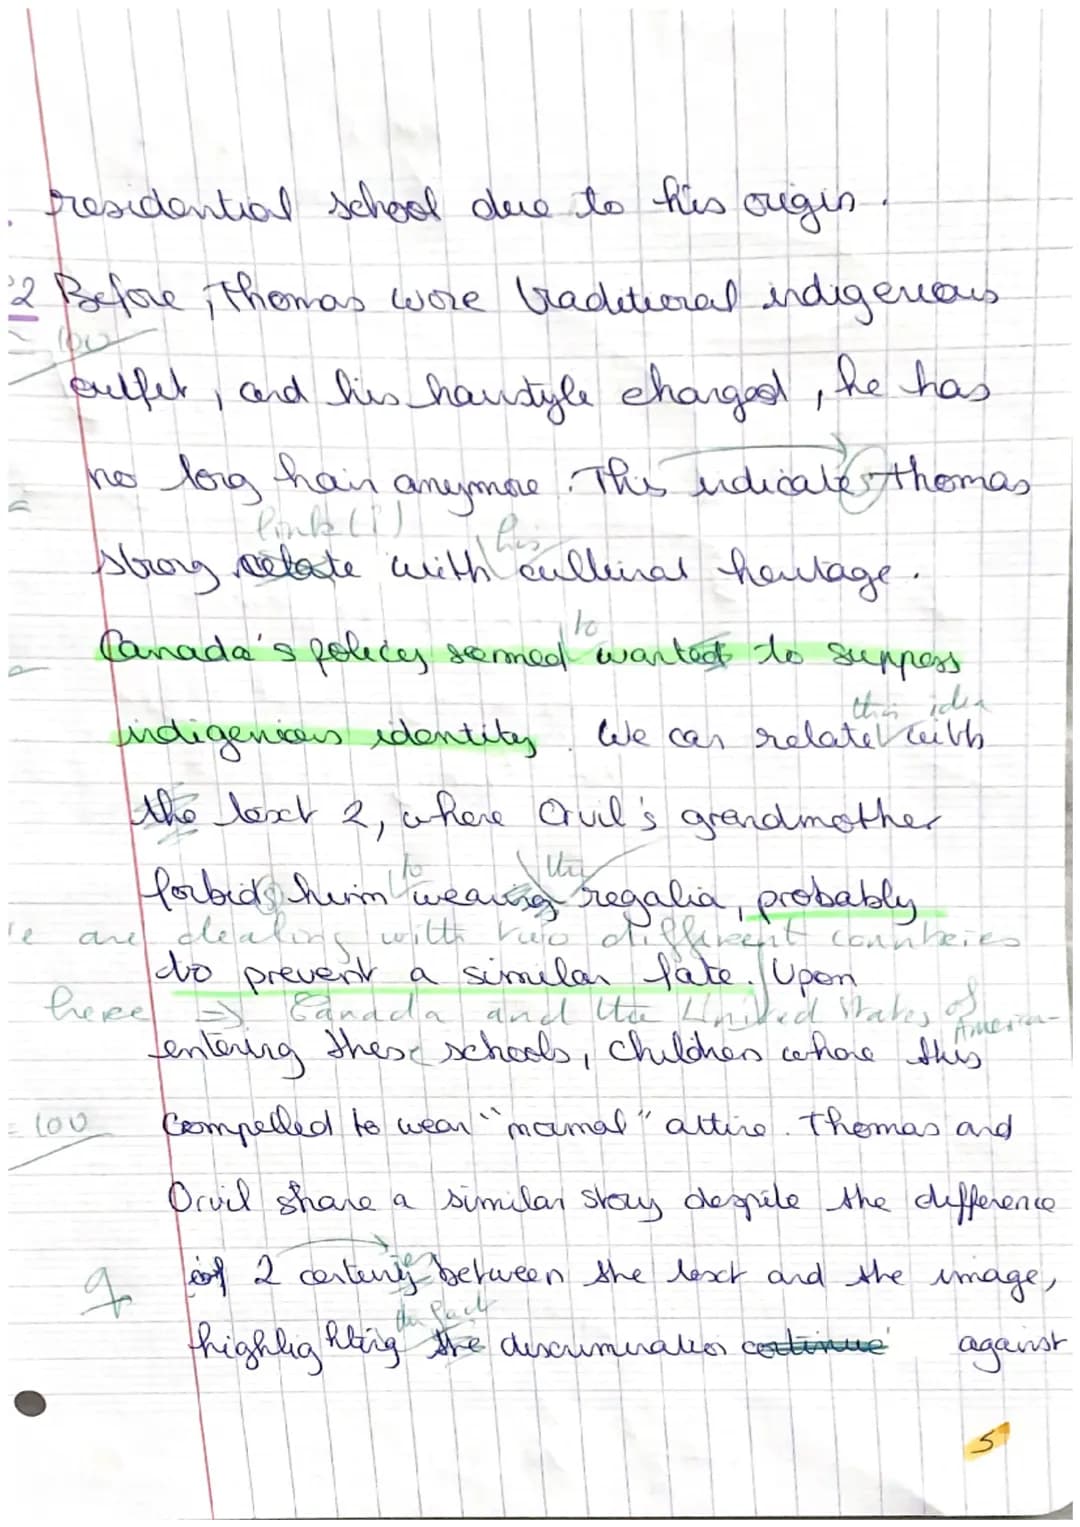 residential school due to his origin.
2 Before, Thomas wore traditional indigenous
100
outfit, and his hairstyle changed, he has
no long hair anymore. This indicates Thomas
link (?) his
strong relate with cultural heritage.
to
Canada's policy seemed wanted to suppress
this idea
indigenious identity. We can relate with
the text 2, where Orvil's grandmother
to the
forbids him wearing regalia, probably
are dealing with two different countries
to prevent a similar fate. Upon
here => Canada and the United States of America
entering these schools, children where this
100 compelled to wear "normal" attire. Thomas and
Orvil share a similar story despite the difference
of 2 century between the text and the image,
the fact
highlighting the discrimination continue against
5